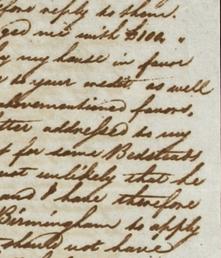 fore reply to them.
ged me with £100,
by my house in favor
to your credit as well
abovementioned favors,
tter addressed to my
t for some Bedsteads
not unlikely that he
and I have therefore
Birmingham to apply
should not have